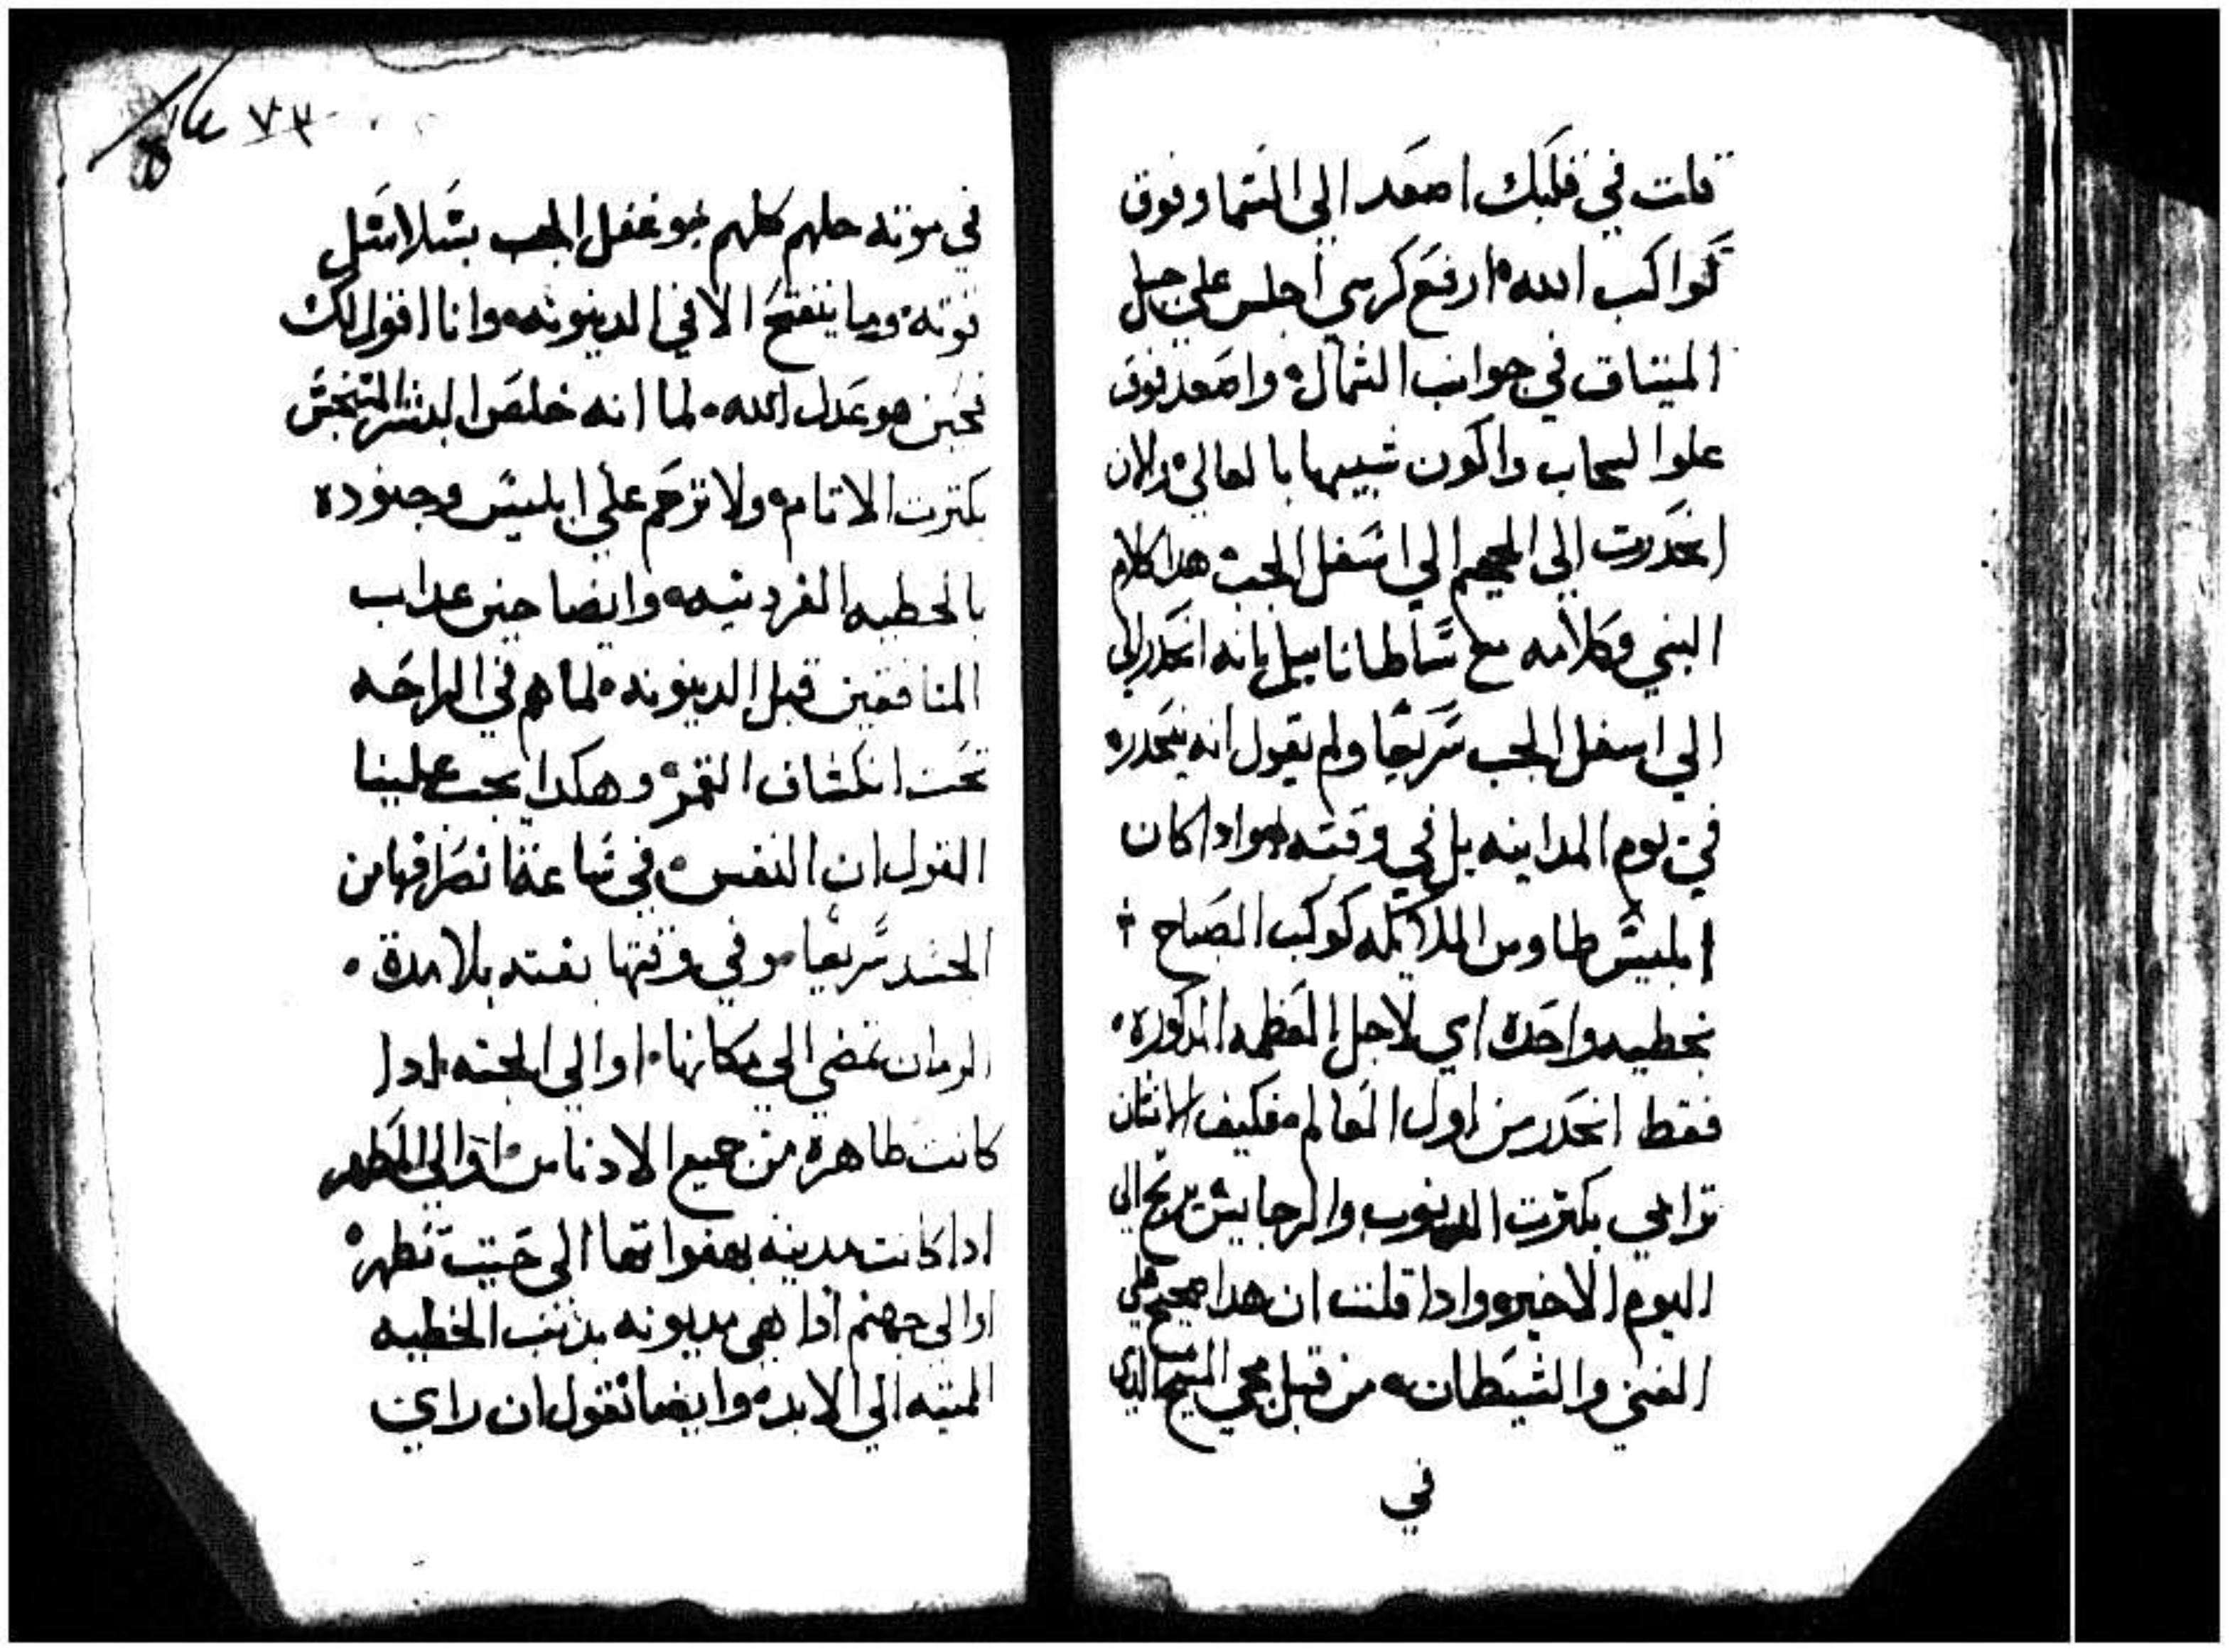 قلت في قلبك اصعد الي السما وفوق
كواكب الله ارفع كرسي اجلس علي جبل
الميتاق في جوانب الشمال واصعد فوق
علوا السحاب واكون شبيها بالعالي والان
انحدرت الي الجحيم الي اسفل الجب هدا كلام
النبي وكلامه مع ساطانايل بانه انحدر الي
الي اسفل الجب سريعا ولم يقول انه ينحدر
في يوم المداينه بل في وقته وادا كان
ابليس طاووس الملايكه كوكب الصباح
بخطيه واحده اي لاجل العظمه المدكوره
فقط انحدر من اول العالم فكيف الانسان
ترابي بكترت الدنوب والرجايس يربح الي
اليوم الاخير وادا قلت ان هدا صحيح في
الغني والشيطان من قبل مجي المسيح الدي
في
٧٣
في موته حلهم كلهم وغفل الجب بسلاسل
قوته وما ينفتح الا في الدينونه وانا اقول لك
فحين هو عدل الله لما انه خلص البشر المتنجس
بكترت الاتام ولا ترحم علي ابليس وجنوده
بالخطيه الفردنيه وايضا حين عداب
المنافقين قبل الدينونه لما هم في الراحه
تحت انكشاف القمر وهكدا يجب علينا
القول ان النفس في ساعة انصرافها من
الجسد سريعا وفي وقتها بغته بلا مدة
الزمان تمضي الي مكانها اوالي الجنه ادا
كانت طاهره من جميع الادناس اوالي المطهر
ادا كانت مدينه بهفواتها الي حيت تطهر
اوالي جهنم ادا هي مديونه بدنب الخطيه
المميته الي الابد وايضا نقول ان راي